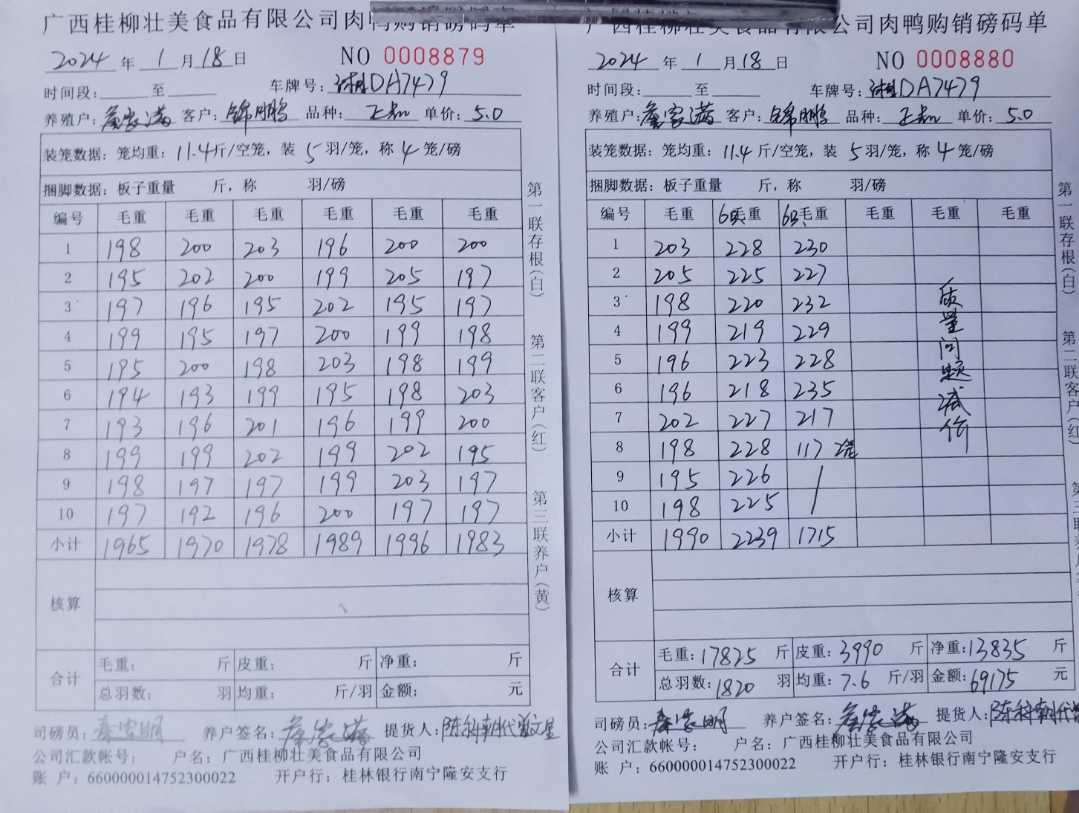 广西桂柳壮美食品有限公司肉鸭购销磅码单
2024年1月18日 NO 0008879
时间段: 至 车牌号: 湘DA7479
养殖户: 家满 客户: 锦鹏 品种: 单价: 5.0
装笼数据: 笼均重: 11.4斤/空笼, 装5羽/笼, 称4笼/磅
捆脚数据: 板子重量 斤, 称 羽/磅
编号 毛重 毛重 毛重 毛重 毛重 毛重
1 198 200 203 196 200 200
2 195 202 200 199 205 197
3 197 196 195 202 195 197
4 199 195 197 200 199 198
5 195 200 198 203 198 199
6 194 193 199 195 198 203
7 193 196 201 196 199 200
8 199 199 202 199 202 195
9 198 197 197 199 203 197
10 197 192 196 200 197 197
小计 1965 1970 1978 1989 1996 1983
核算
合计
毛重: 斤 皮重: 斤 净重: 斤
总羽数: 羽 均重: 斤/羽 金额: 元
司磅员: 养户签名: 提货人:
公司汇款帐号: 户名: 广西桂柳壮美食品有限公司
账 户: 660000014752300022 开户行: 桂林银行南宁隆安支行
第一联存根(白) 第二联客户(红) 第三联养户(黄)
广西桂柳壮美食品有限公司肉鸭购销磅码单
2024年1月18日 NO 0008880
时间段: 至 车牌号: 湘DA7479
养殖户: 家满 客户: 锦鹏 品种: 单价: 5.0
装笼数据: 笼均重: 11.4斤/空笼, 装5羽/笼, 称4笼/磅
捆脚数据: 板子重量 斤, 称 羽/磅
编号 毛重 6只毛重 6只毛重 毛重 毛重 毛重
1 203 228 230
2 205 225 227
3 198 220 232
4 199 219 229
5 196 223 228
6 196 218 235
7 202 227 217
8 198 228 117 2笼
9 195 226
10 198 225
小计 1990 2239 1715
质量问题减价
核算
合计
毛重: 17825斤 皮重: 3990斤 净重: 13835斤
总羽数: 1820羽 均重: 7.6斤/羽 金额: 69175元
司磅员: 养户签名: 提货人:
公司汇款帐号: 户名: 广西桂柳壮美食品有限公司
账 户: 660000014752300022 开户行: 桂林银行南宁隆安支行
第一联存根(白) 第二联客户(红) 第三联